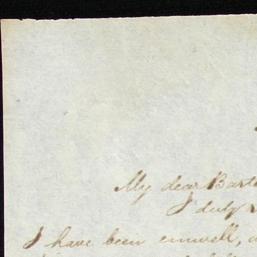 My dear Bart
I duly
I have been unwell, a